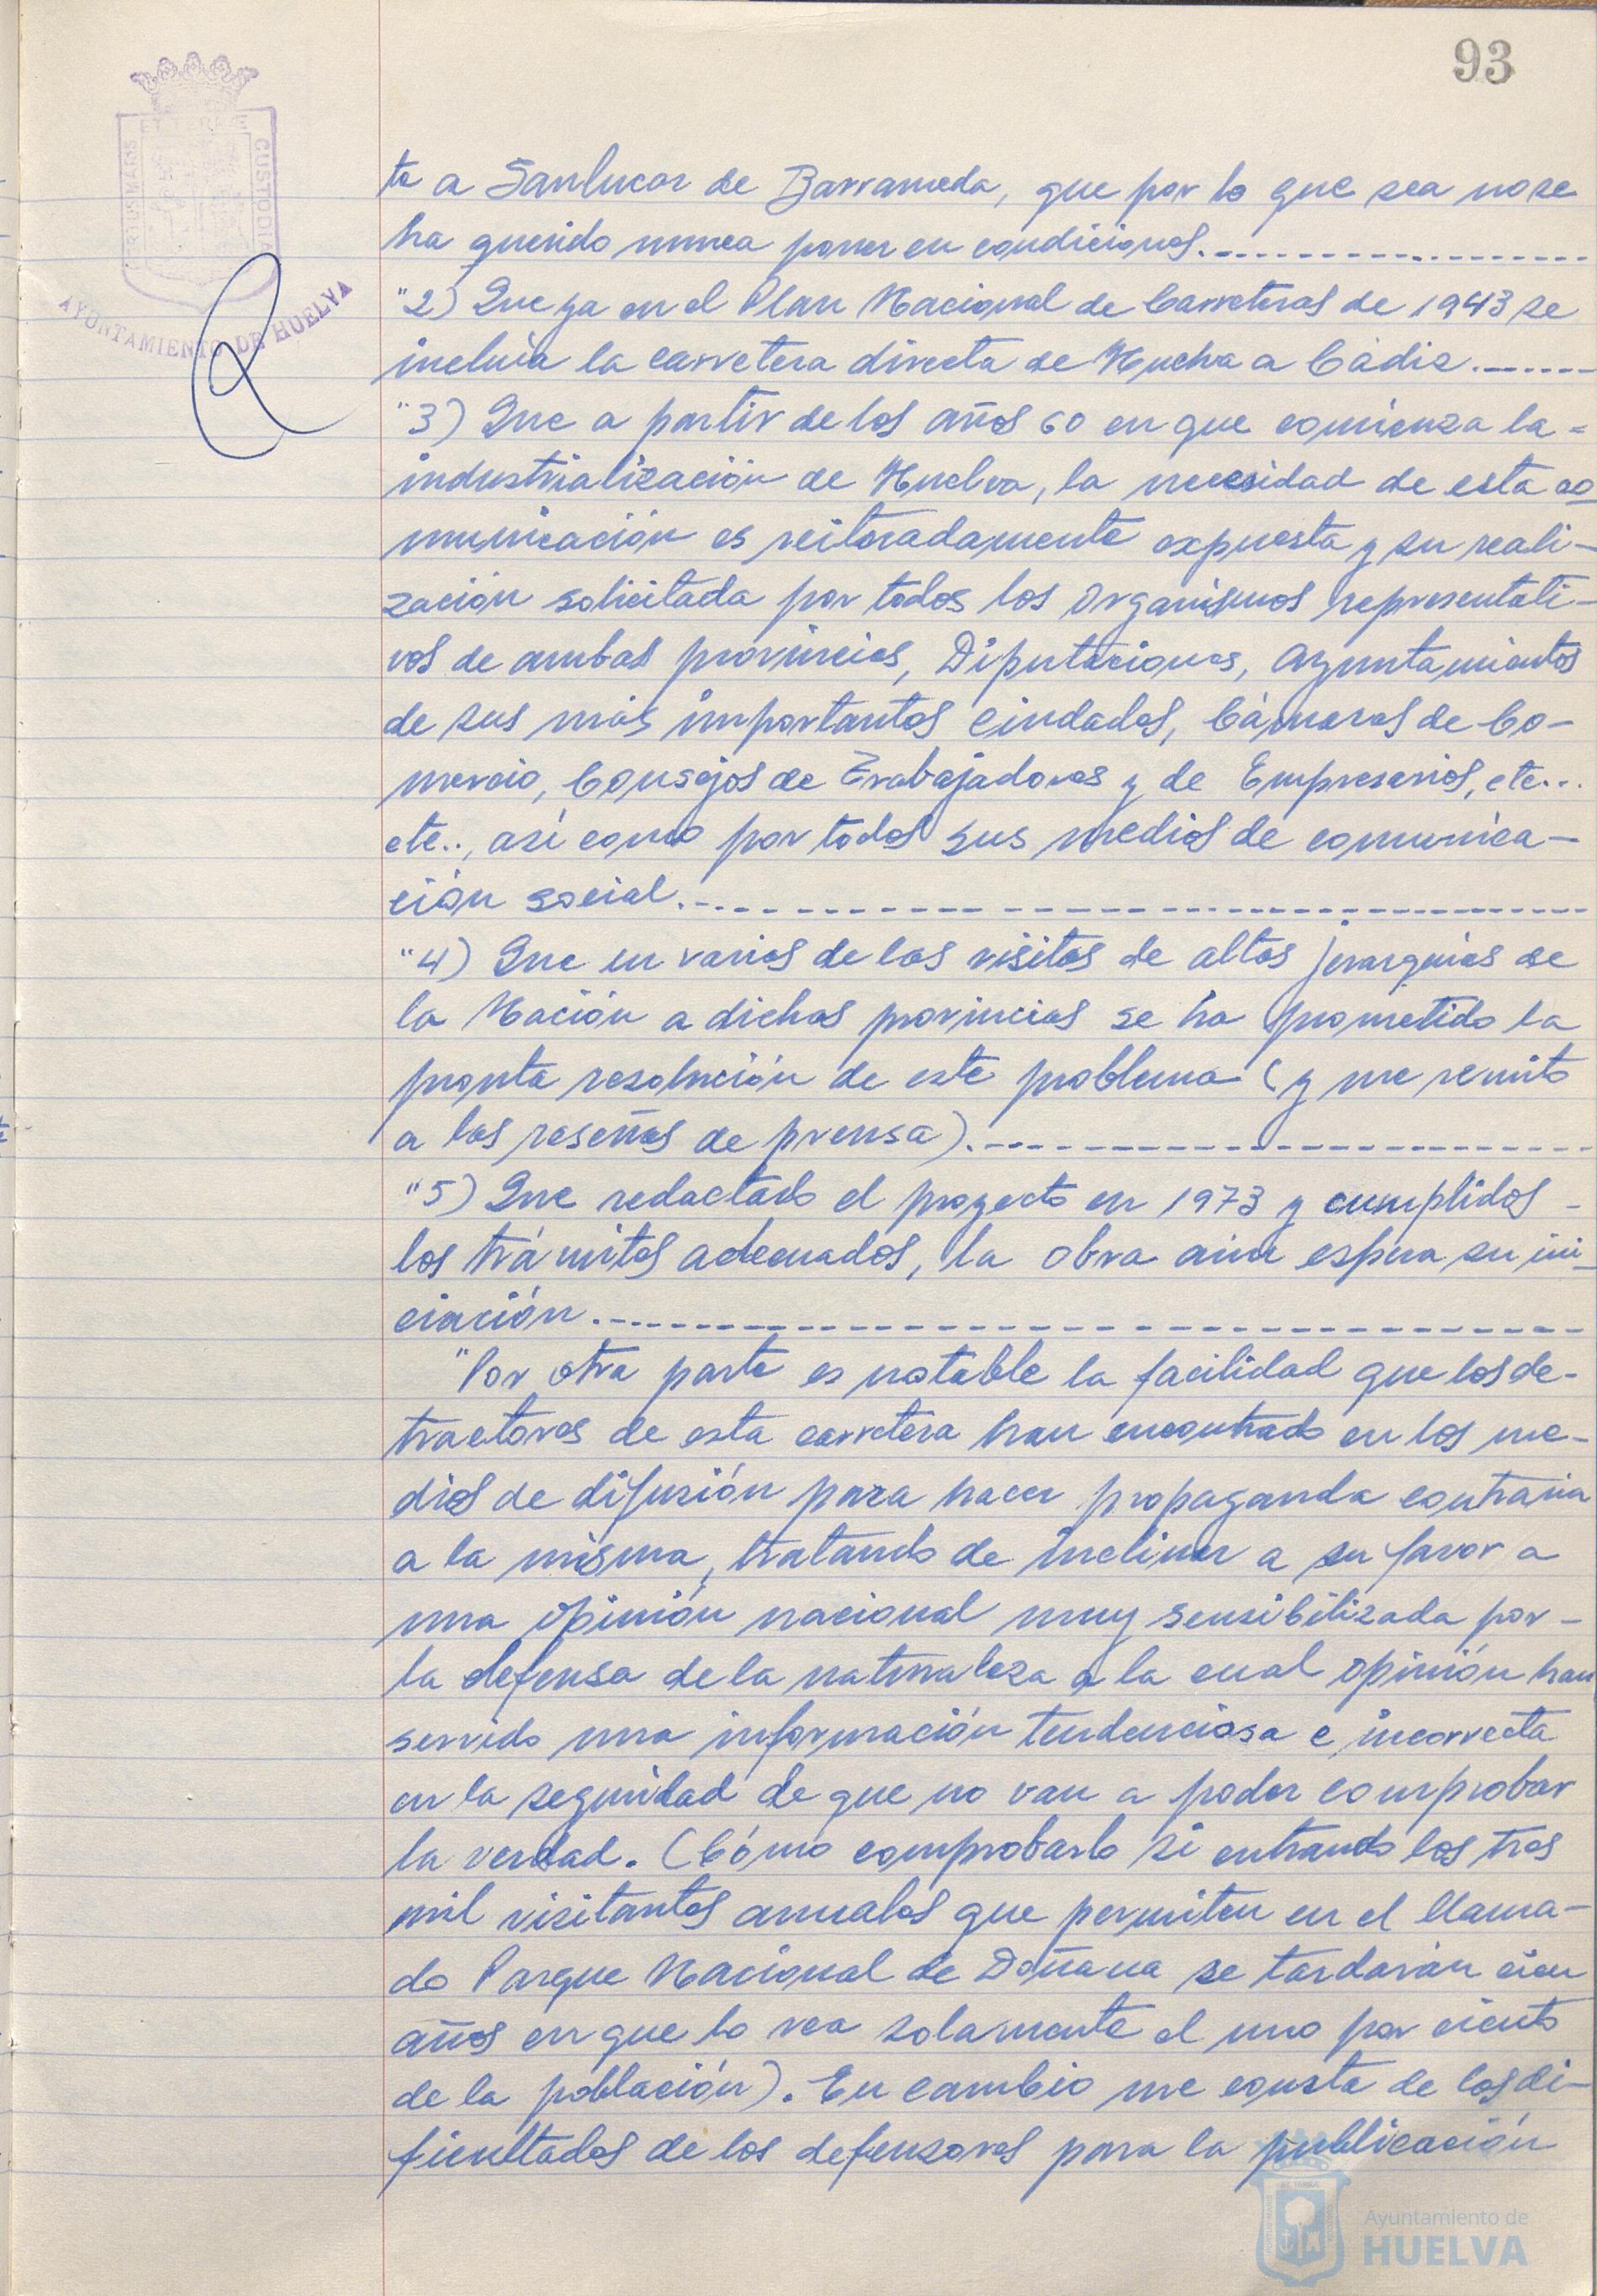 93
PORTUS MARIS
ET TERRE
CUSTODIA
AYUNTAMIENTO DE HUELVA
ta a Sanlucar de Barrameda, que por lo que sea no se
ha querido nunca poner en condiciones.
"2) Que ya en el Plan Nacional de Carreteras de 1943 se
incluía la carretera directa de Huelva a Cádiz.
"3) Que a partir de los años 60 en que comienza la=
industrialización de Huelva, la necesidad de esta co
municación es reiteradamente expuesta y su reali-
zación solicitada por todos los Organismos representati-
vos de ambas provincias, Diputaciones, Ayuntamientos
de sus más importantes ciudades, Cámaras de Co-
mercio, Consejos de Trabajadores y de Empresarios, etc...
etc.., así como por todos sus medios de comunica-
ción social.
"4) Que en varias de las visitas de altas jerarquías de
la Nación a dichas provincias se ha prometido la
pronta resolución de este problema (y me remito
a las reseñas de prensa).
"5) Que redactado el proyecto en 1973 y cumplidos -
los trámites adecuados, la obra aún espera su ini
ciación.
"Por otra parte es notable la facilidad que los de-
tractores de esta carretera han encontrado en los me-
dios de difusión para hacer propaganda contraria
a la misma, tratando de inclinar a su favor a
una opinión nacional muy sensibilizada por-
la defensa de la naturaleza a la cual opinión han
servido una información tendenciosa e incorrecta
en la seguridad de que no van a poder comprobar
la verdad. (Cómo comprobarlo si entrando los tres
mil visitantes anuales que permiten en el llama-
do Parque Nacional de Doñana se tardarán cien
años en que lo vea solamente el uno por ciento
de la población). En cambio me consta de las di-
ficultades de los defensores para la publicación
Ayuntamiento de
HUELVA